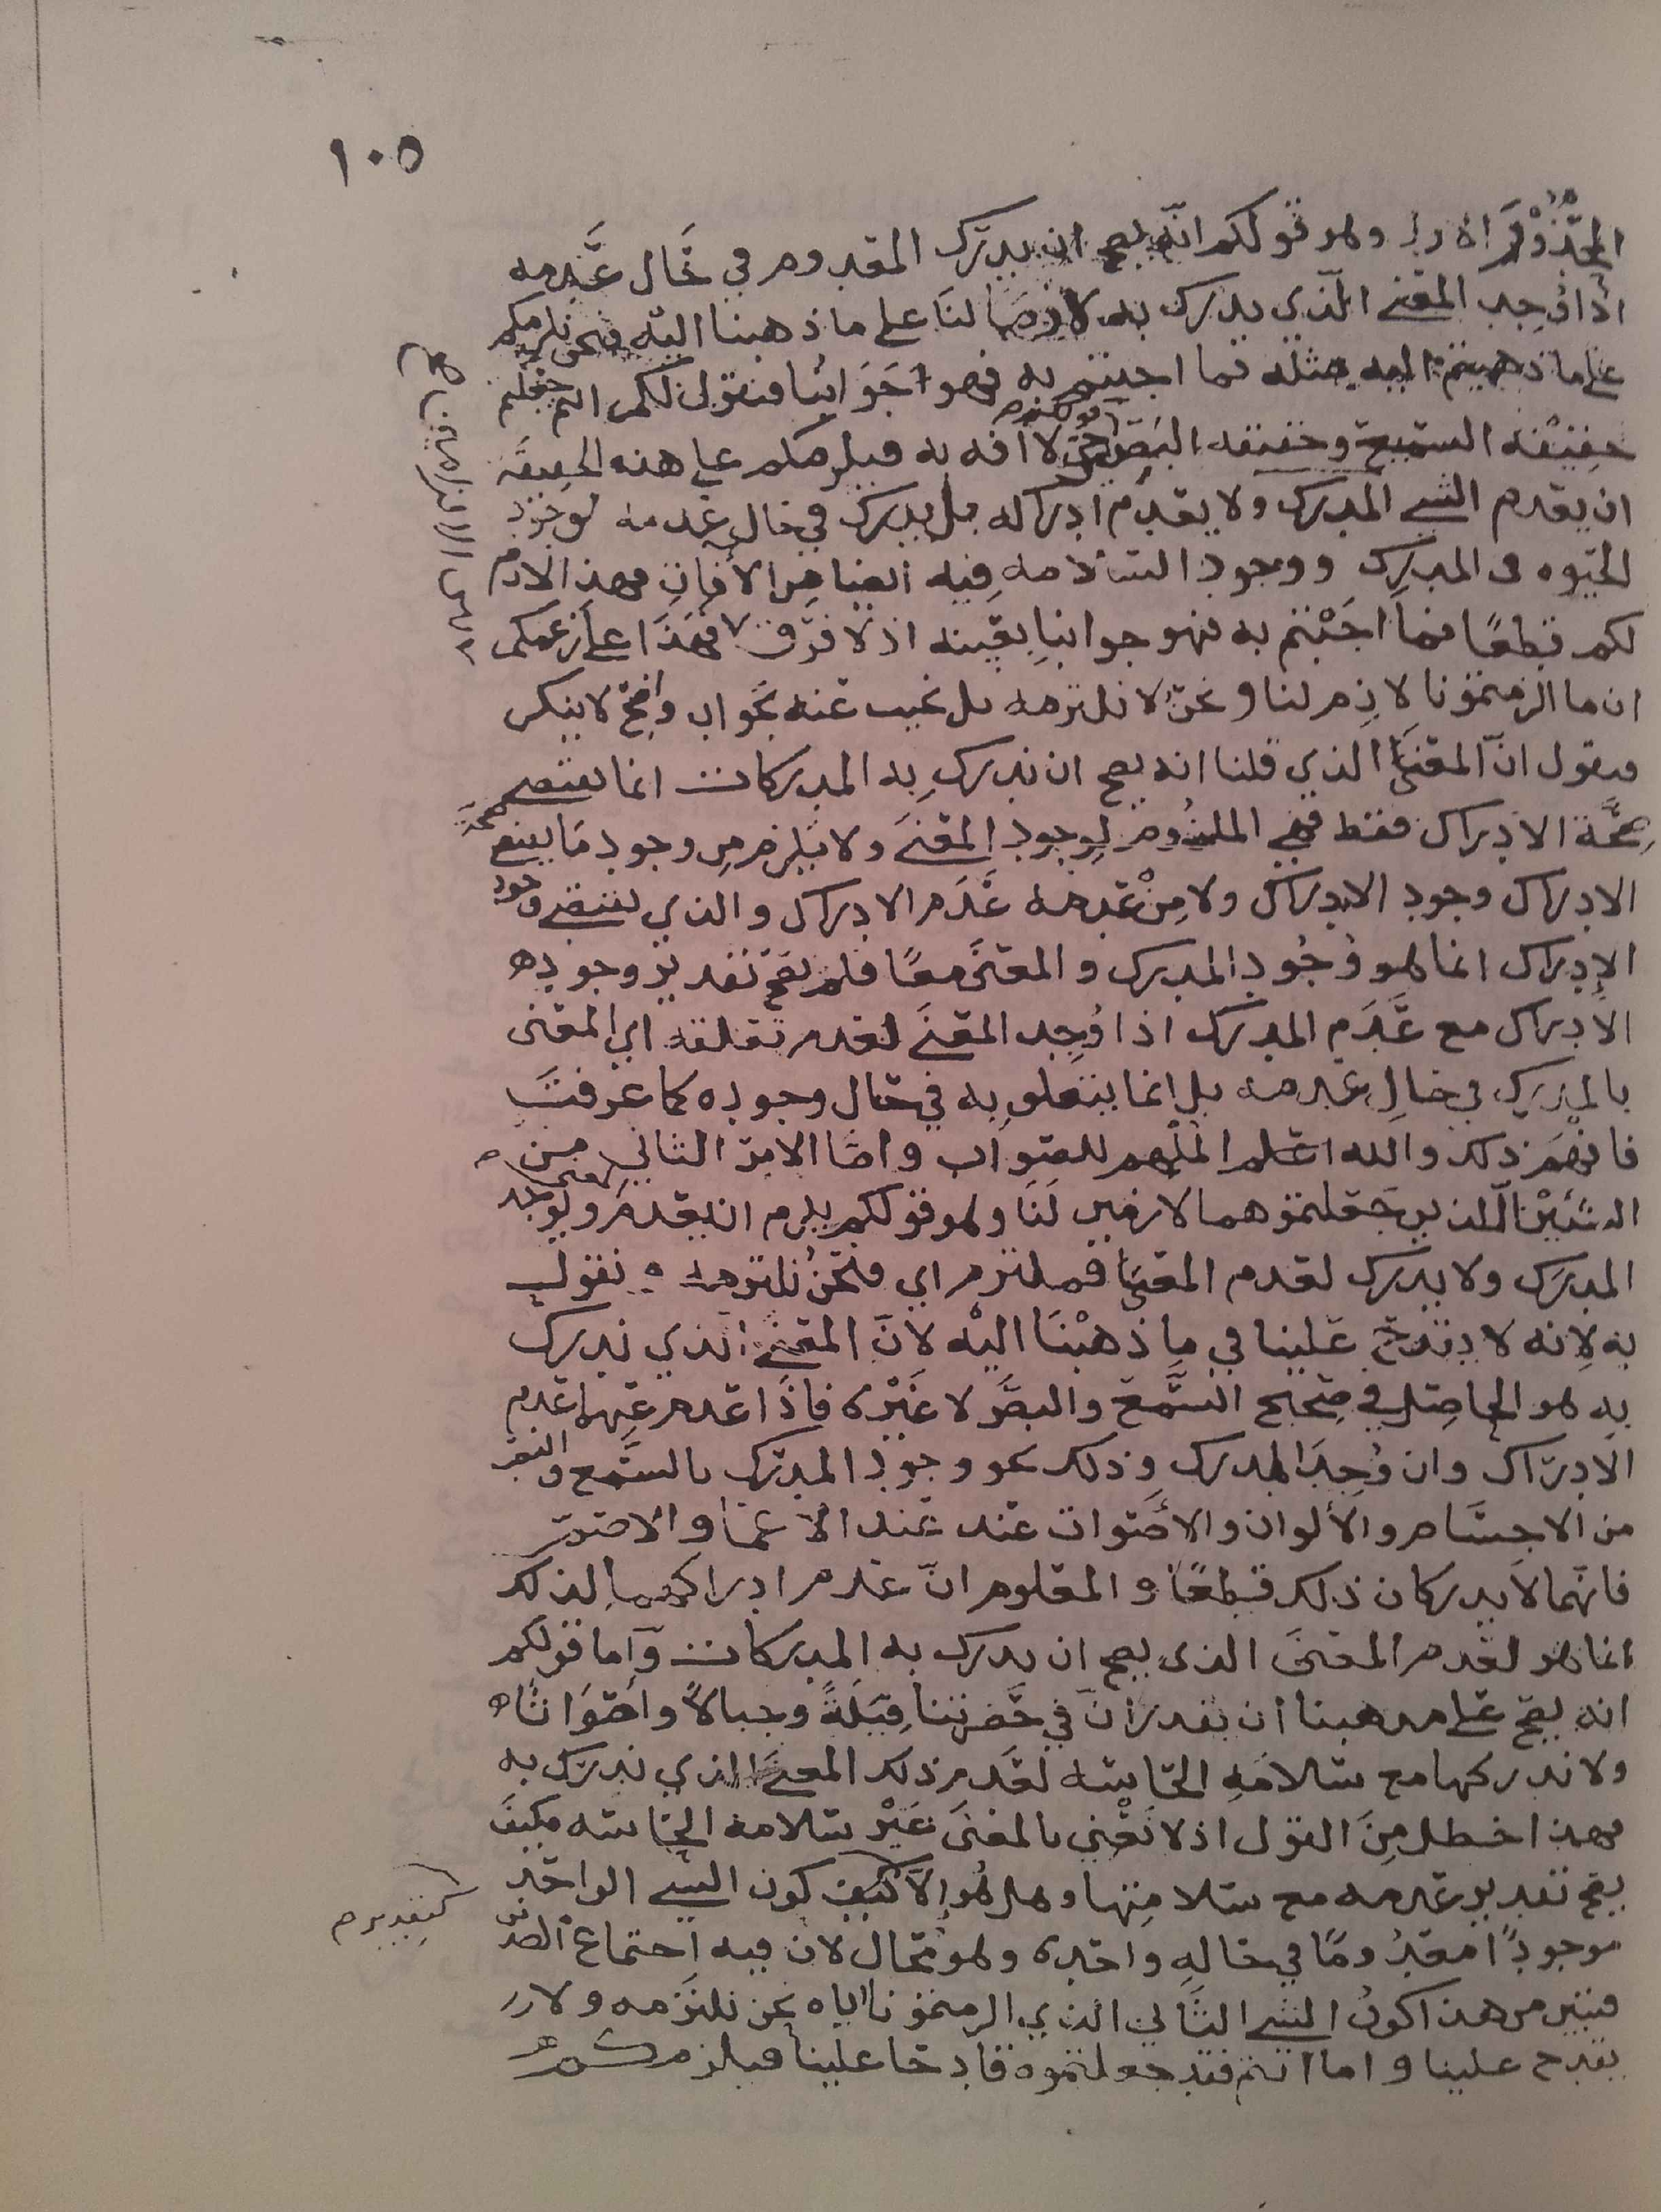 ١٠٥
وهو قولكم انه يصح ان يدرك المعدوم في حال عدمه
اذا وجد المعنى الذي يدرك به لازما لنا على ما ذهبنا اليه فنحن نلزمكم
على ما ذهبتم اليه مثله فما اجبتم به فهو جوابنا فنقول لكم انتم جعلتم
حقيقة السميع وحقيقة البصير حي لا افه به فيلزمكم على هذه الحقيقة
ان يعدم الشي المدرك ولا يعدم ادراكه بل يدرك في حال عدمه لوجود
الحيوه في المدرك ووجود السلامه فيه ايضا من الأفات فهذا لازم
لكم قطعًا فما اجبتم به فهو جوابنا بعينه اذ لا فرق فهذا على زعمكم
ان ما الزمتمونا لازم لنا ونحن لا نلتزمه بل نجيب عنه بجواب واضح لا ينكر
فنقول انّ المعنى الذي قلنا انه يصح ان ندرك به المدركات انما يقتضي
صحّة الادراك فقط فهي الملزوم لوجود المعنى ولا يلزم من وجود ما يصح
الادراك وجود الادراك ولا مِنْ عدمه عَدَم الادراك والذي يقتضي وجود
الإدراك انما هو وُجُود المدرك والمعنى معًا فلم يصح تقدير وجوده
الادراك مع عَدَم المدرك اذا وُجِد المعنى لعدم تعلقه اي المعنى
بالمدرك في حال عدمه بل انما يتعلق به في حال وجوده كما عرفت
فافهم ذلك والله اعلم الملهم للصواب واما الامر الثاني من
الشيئين الّلذين جعلتموهما لازمين لنا وهو قولكم يلزم ان يعدم ولو وجد
المدرك ولا يدرك لعدم المعنى فملتزم اي فنحنُ نلتزمه و نقول
به لانه لا يقدح علينا في ما ذهبْنَا اليْه لانّ المعنى الذي ندرك
به هو الحاصل في صحيح السَّمع والبصَر لا غَيْره فاذا عدم عنهما عدم
الادراك وان وُجِدَ المدرك وذلك نحو وجود المدرك بالسَّمع والبصر
من الاجسام والألوان والأصوات عند عند الاعما والاصم
فانهما لا يدركان ذلك قطعًا والمعلوم انّ عدم ادراكهما لذلك
انما هو لعدم المعنى الذى يصح ان يدرك به المدركات واما قولكم
انه يصح على مذهبنا ان نقدر انّ في حَضرتنا فِيَلَةً وجبالاً واصْوَاتا
ولا ندركها مع سلامَةِ الحاسّه لعَدم ذلك المعنى الذي ندرك به
فهذا خطل مِنَ القول اذ لا نَعْني بالمعنى غَيْر سلامة الحاسّه فكيف
يصح تقدير عدمه مع سلامتها وهل هُو إلاَّ كيف كون الشي الواحد
كتقدير
موجودًا معدُومًا في حاله واحده وهو مُحال لان فيه اجتماع الضدين
فتبين من هذا كونُ الشي الثاني الذي الزمتمونا اياه نحن نلتزمه ولا
يقدح علينا واما انتم فقد جعلتموه قادحا علينا فيلزمكم